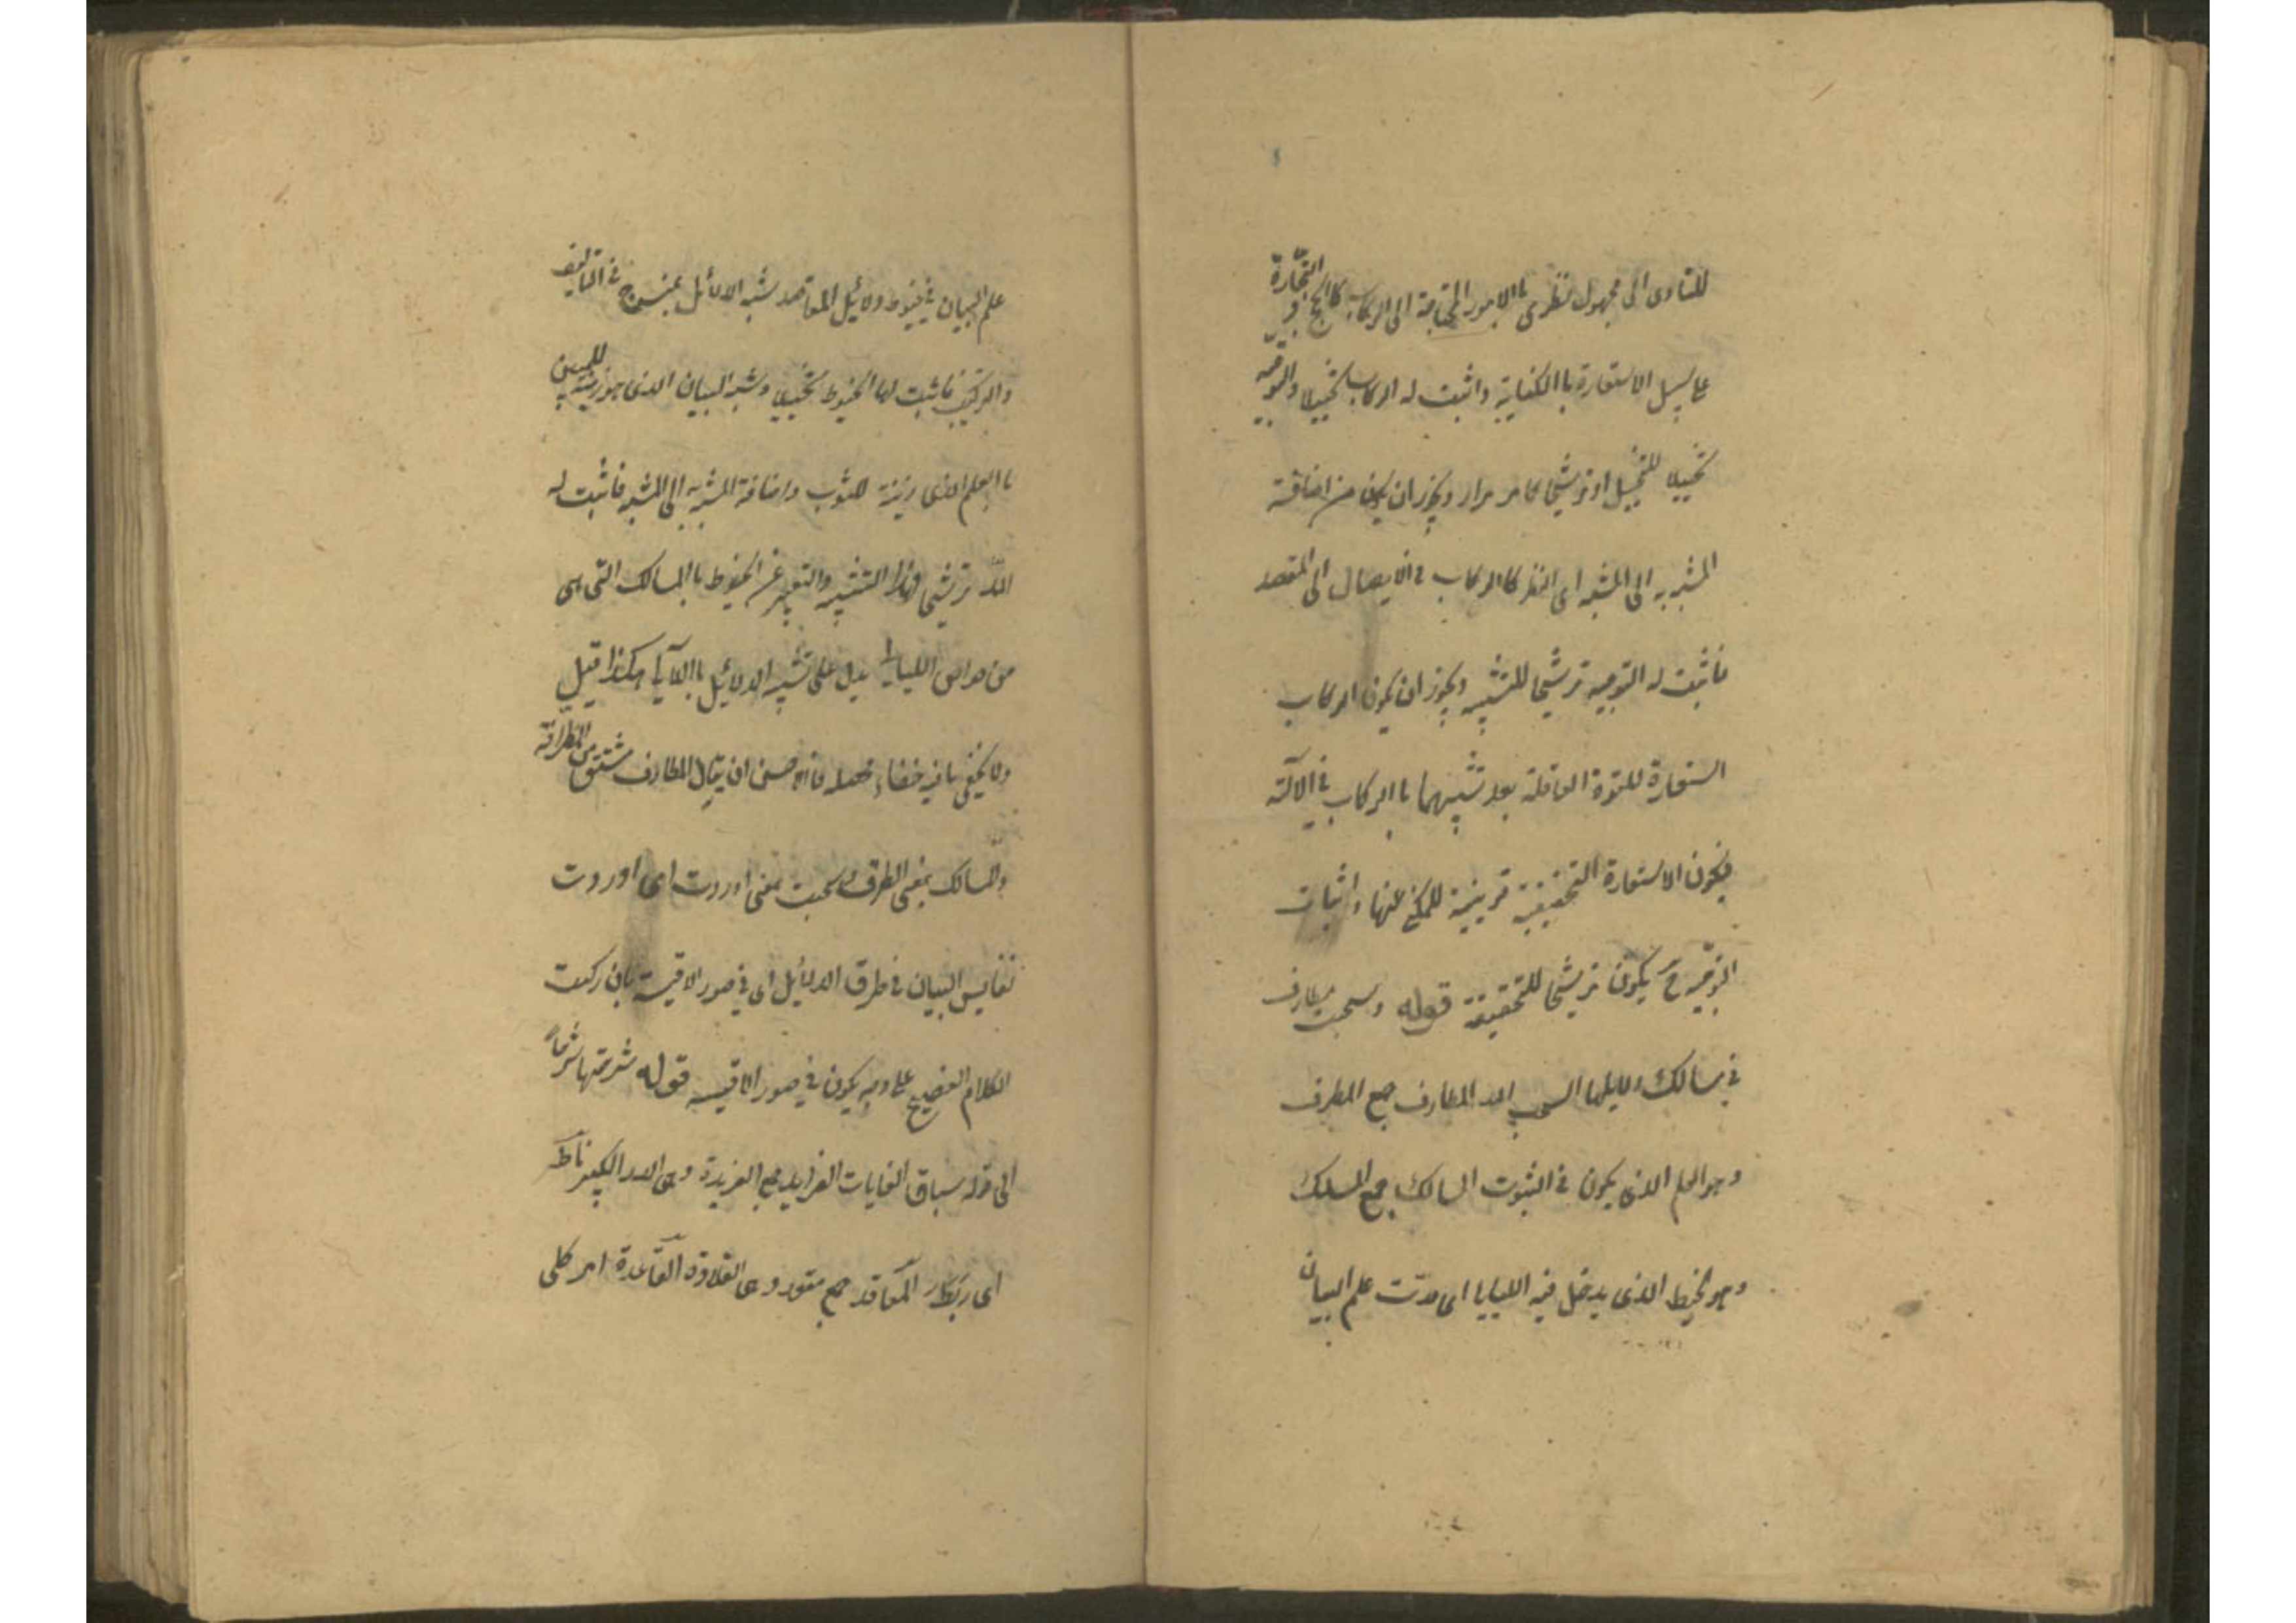 للتادى الى مجهول نظرى بالامور المحتاجة الى الركاب كالحج و التجارة
على سبيل الاستعارة باالكناية واثبت له الركاب تخييلا والتوجيه
تخييلا للتخييل او ترشيحا كما مر مرار ويجوز ان يكون من اضافة
المشبه به الى المشبه اى النظر كالركاب فى الايصال الى المقصد
فاثبت له التوجيه ترشيحا للتشبيه ويجوز ان يكون الركاب
استعارة للقوة العاقلة بعد تشبيهها باالركاب فى الآلة
فيكون الاستعارة التحقيقية قرينة للمكنى عنها واثبات
التوجيه ح يكون ترشيحا للتحقيقة قوله وسحبت مطارف
فى مسالك دلايلها السحب المد المطارف جمع المطرف
وهو العلم الذى يكون فى الثوب المسالك جمع المسلك
وهو الخيط الذى يدخل فيه الليايا اى مدّت علم البيان
علم البيان فى خيوط دلائل المقاصد شبه الدلائل بمنسوج فى التاليف
والتركيب فاثبت لها الخيوط تخييلا وشبه البيان الذى هو زينة للمبين
باالعلم الذى زينة للثوب واضافة المشبه به الى المشبه فاثبت له
المدّ ترشيحا لهذا التشبيه والتعبير عن الخيوط باالمسالك التى هى
من خواص الليايا يدل على تشبيه الدلائل باالآلى هكذا قيل
ولا يخفى ما فيه خفاء فالاحسن ان يقال المطارف مشتق من الطرافة
والمسالك بمعنى الطرق وسحبت بمعنى اوردت اى اوردت
نفايس البيان فى طرق الدلائل اى فى صور الاقيسة بان ركبت
الكلام الفصيح على وجه يكون فى صور الاقيسه قوله شرحتها شرحاً
الى قوله سباق الغايات الفرايد جمع الفريدة وهى الدر الكبير ناط
اى ربط المعاقد جمع معقد وهى القلادة القاعدة امر كلى